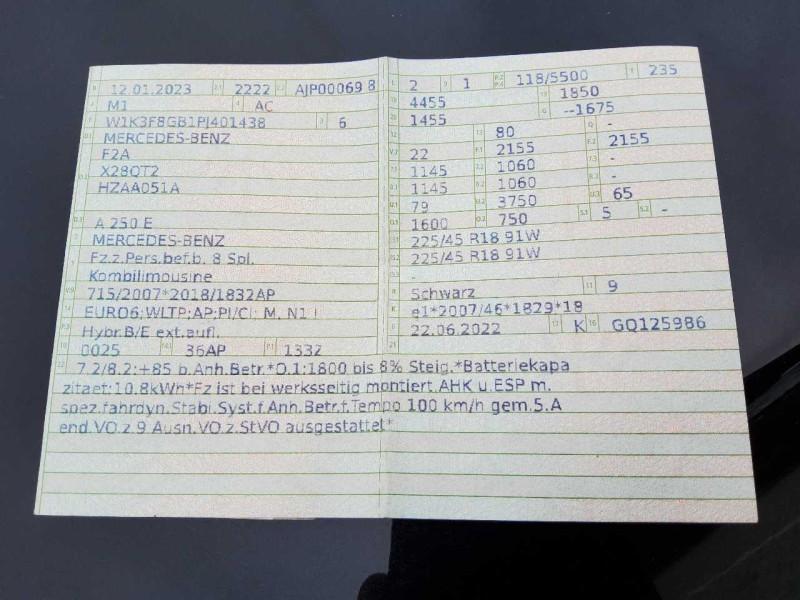 12.01.2023 2222 AJP00069 8
M1 AC
W1K3F8GB1PJ401438 6
MERCEDES-BENZ
F2A
X28QT2
HZAA051A
A 250 E
MERCEDES-BENZ
Fz.z.Pers.bef.b. 8 Spl.
Kombilimousine
715/2007*2018/1832AP
EURO6;WLTP;AP;PI/CI; M, N1 I
Hybr.B/E ext.aufl.
0025 36AP 1332
2 1 118/5500 235
4455 1850
1455 --1675
80 -
22 2155 2155
1145 1060 -
1145 1060 -
79 3750 65
1600 750 5 -
225/45 R18 91W
225/45 R18 91W
-
Schwarz 9
e1*2007/46*1829*18
22.06.2022 K GQ125986
7.2/8.2:+85 b.Anh.Betr.*O.1:1800 bis 8% Steig.*Batteriekapa
zitaet:10.8kWh*Fz ist bei werksseitig montiert.AHK u.ESP m.
spez.fahrdyn.Stabi.Syst.f.Anh.Betr.f.Tempo 100 km/h gem.5.Ä
end.VO.z.9 Ausn.VO.z.StVO ausgestattet*